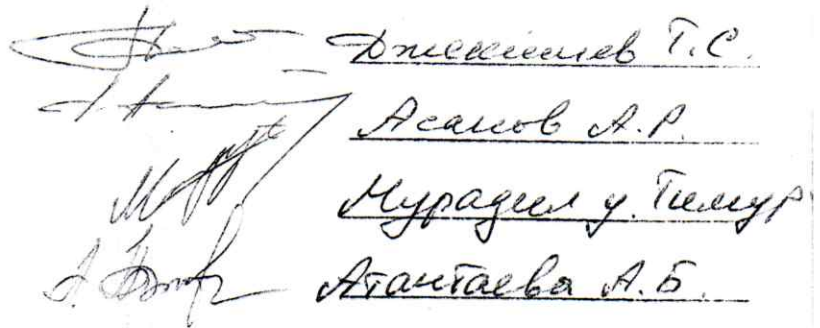 Джекишев Т.С.
Асанов А.Р.
Мурадил у. Тимур
Атантаева А.Б.